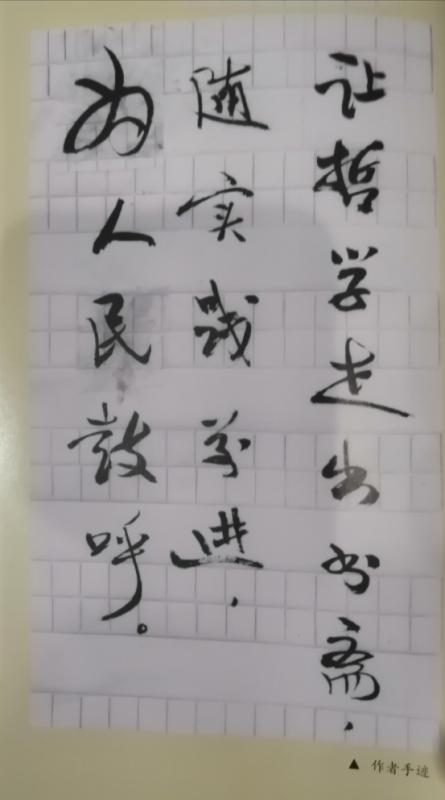 让哲学走出书斋，
随实践前进，
为人民鼓呼。
▲ 作者手迹